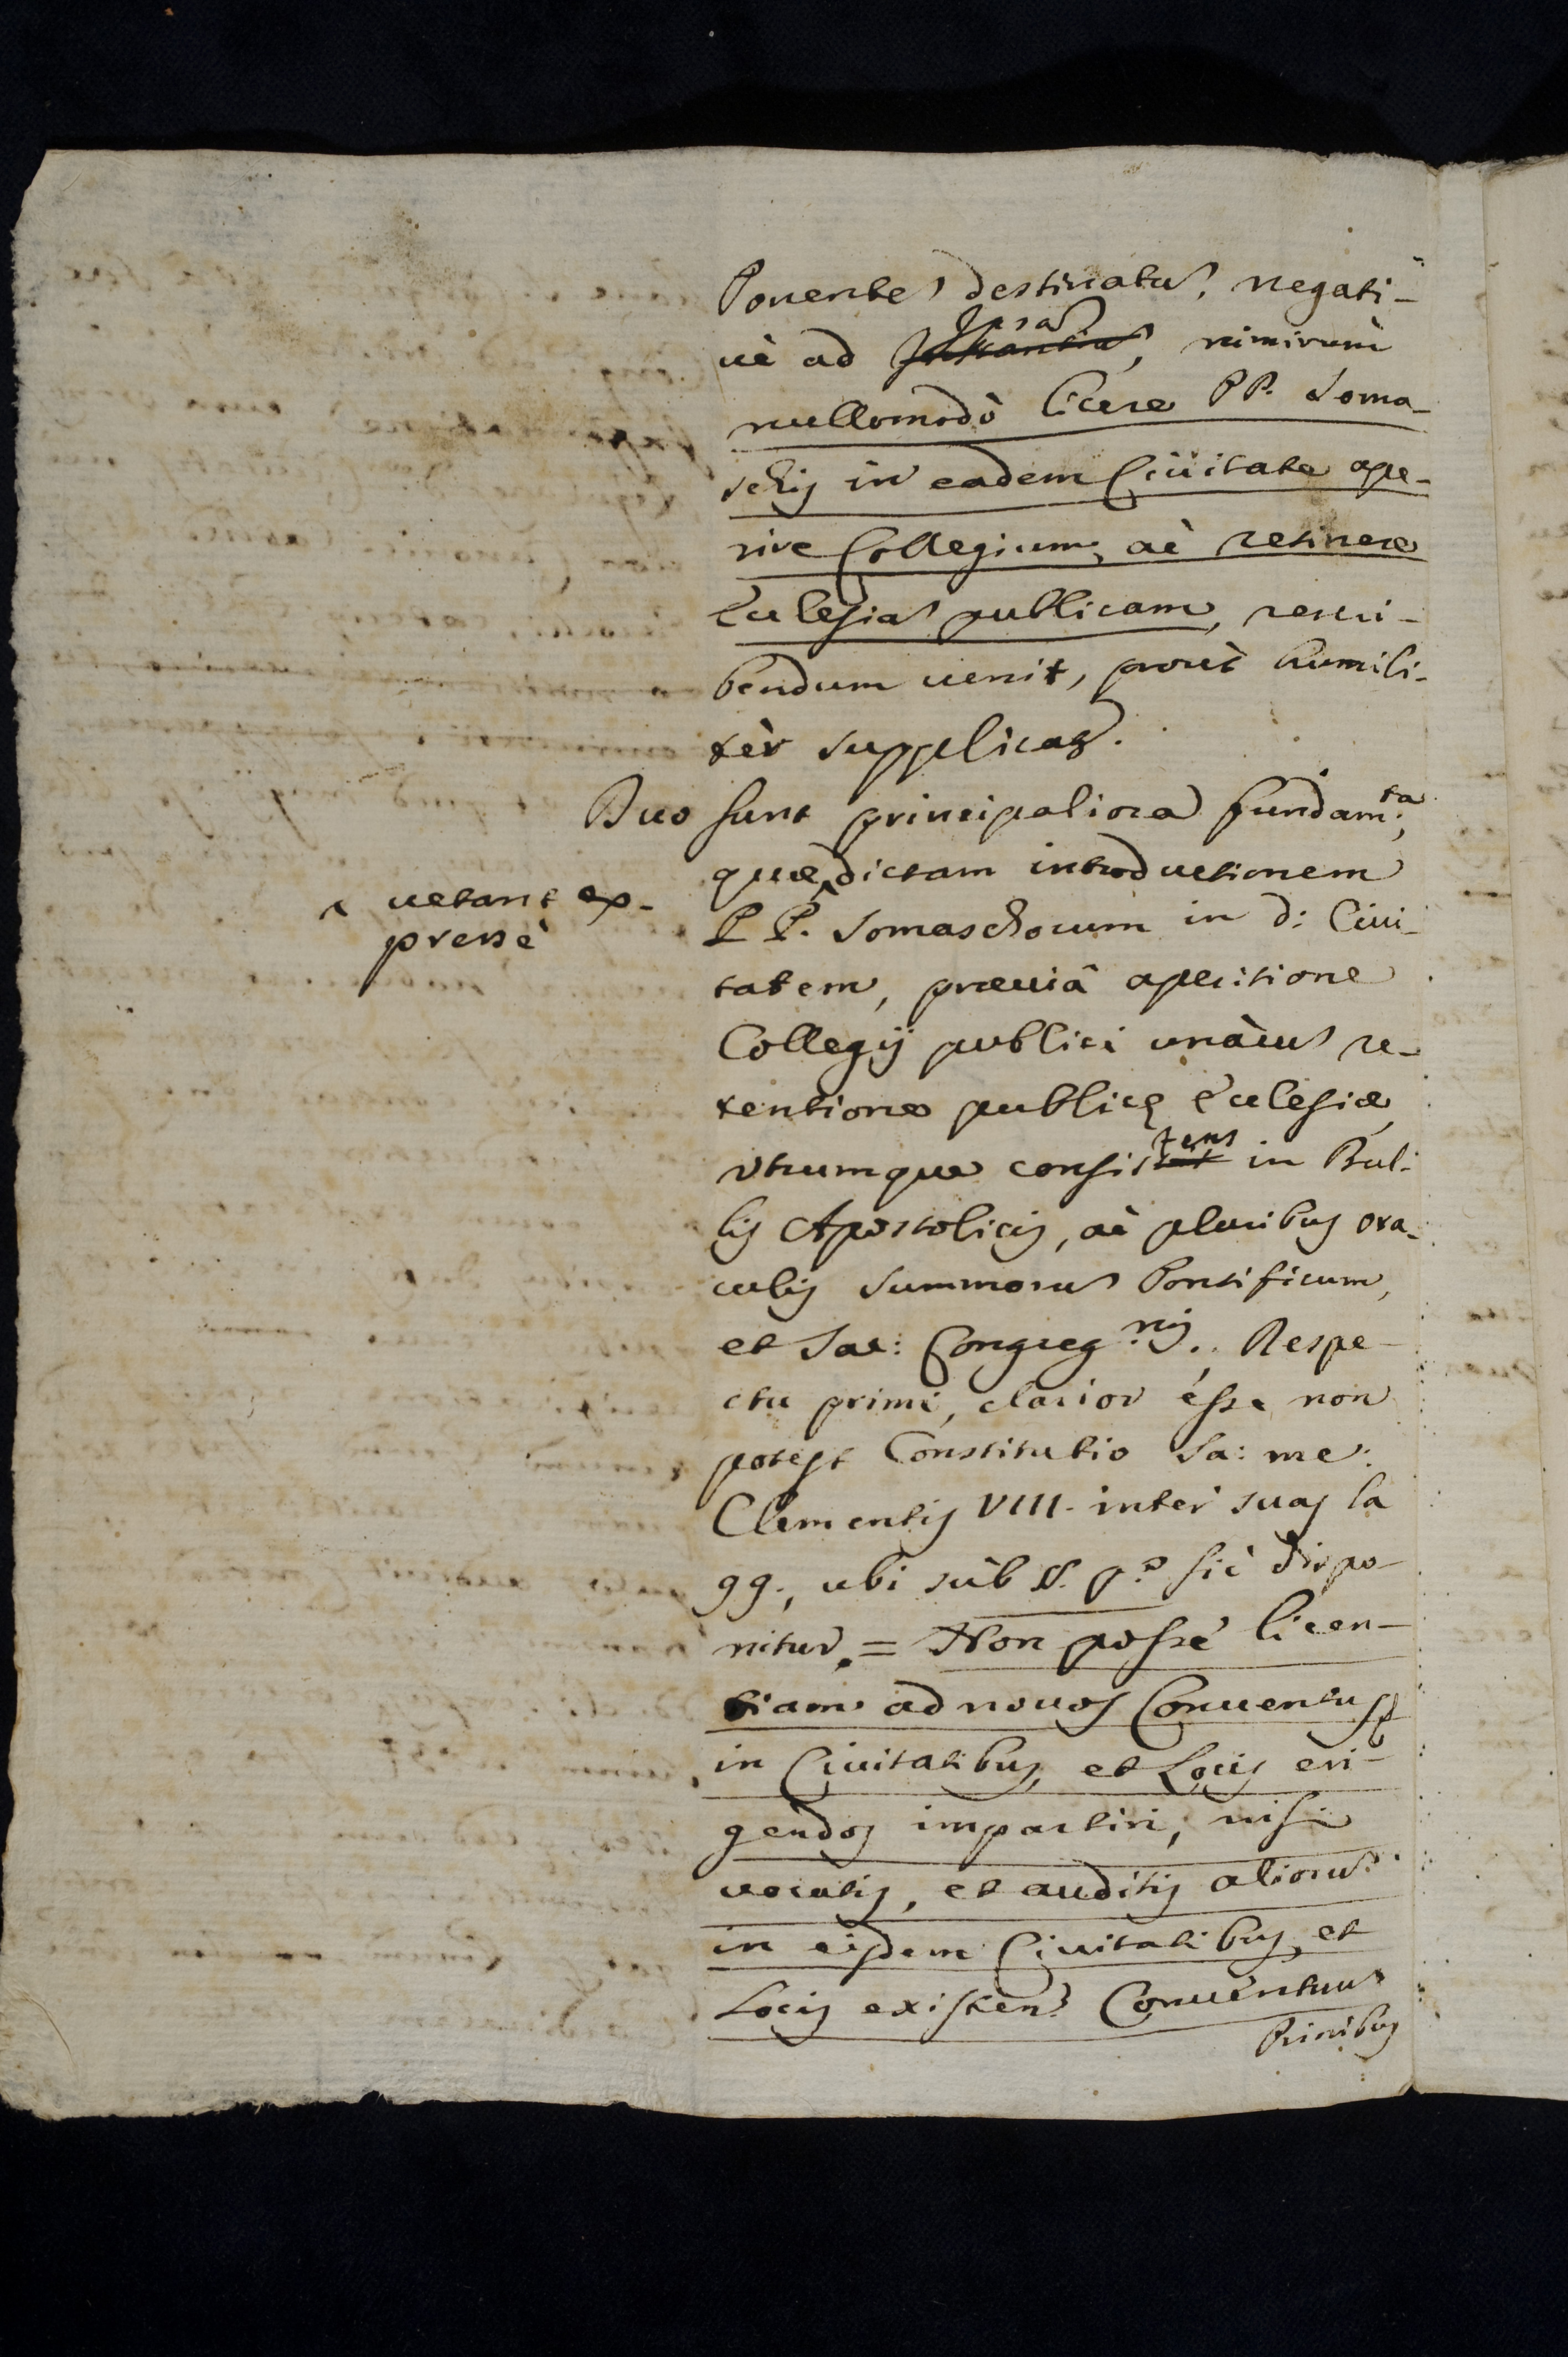 Ponente destinatu, negati-
uè ad Ipsa Instantia, nimirum
nullomodò licere PP. Soma-
schis in eadem Ciuitate ape-
rire Collegium, ac retinere
Ecclesia publicam, rescri-
bendum uenit, prout humili-
tèr supplicat.
Duo sunt principaliora fundam:ta,
quæ ^ dictam introductionem
^ uetant ex-
pressè
PP. Somaschorum in d: Ciui-
tatem, præuiâ aperitione
Collegij publici unàcu re-
tentione publicę Ecclesiæ,
Vtrumque consistit tens in Bul-
lis Apostolicis, ac pluribus ora-
culis Summoru Pontificum,
et Sac: Congreg:nis. Respe-
ctu primi, clarior esse non
potest Constitutio Sa: me:
Clementis VIII. inter suas la
99., ubi sub §. po sic dispo-
nitur. = Non posse licen-
tiam ad nouos Conuentus
in Ciuitatibus, et Locis eri-
gendos impartiri, nisi
uocatis, et auditis alioru
in eisdem Ciuitatibus, et
Locis existen: Conuentuu
Prioribus